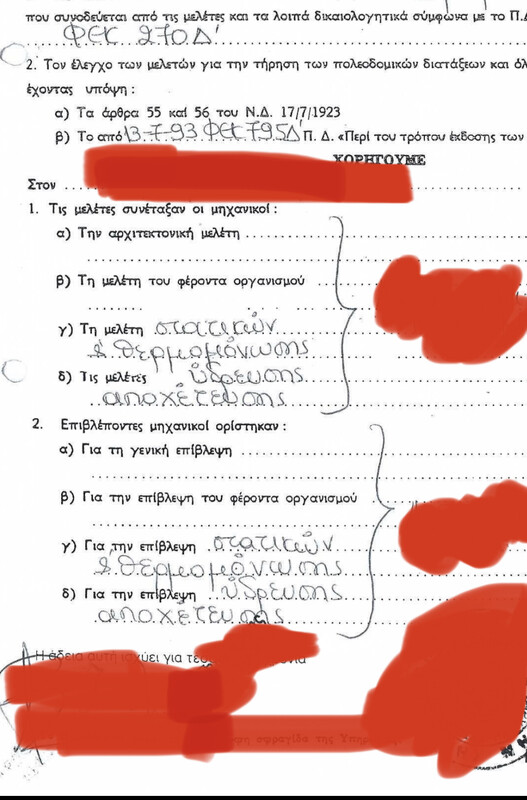 που συνοδεύεται από τις μελέτες και τα λοιπά δικαιολογητικά σύμφωνα με το Π.Δ.
ΦΕΚ 270Δ'
2. Τον έλεγχο των μελετών για την τήρηση των πολεοδομικών διατάξεων και όλ
έχοντας υπόψη :
α) Τα άρθρα 55 και 56 του Ν.Δ. 17/7/1923
β) Το από 13-7-93 ΦΕΚ 795Δ' Π. Δ. «Περί του τρόπου έκδοσης των
ΧΟΡΗΓΟΥΜΕ
Στον
1. Τις μελέτες συνέταξαν οι μηχανικοί :
α) Την αρχιτεκτονική μελέτη
β) Τη μελέτη του φέροντα οργανισμού
γ) Τη μελέτη στατικών
& θερμομόνωσης
δ) Τις μελέτες ύδρευσης
αποχέτευσης
2. Επιβλέποντες μηχανικοί ορίστηκαν :
α) Για τη γενική επίβλεψη
β) Για την επίβλεψη του φέροντα οργανισμού
γ) Για την επίβλεψη στατικών
& θερμομόνωσης
δ) Για την επίβλεψη ύδρευσης
αποχέτευσης
Η άδεια αυτή ισχύει για
σφραγίδα της Υπηρ